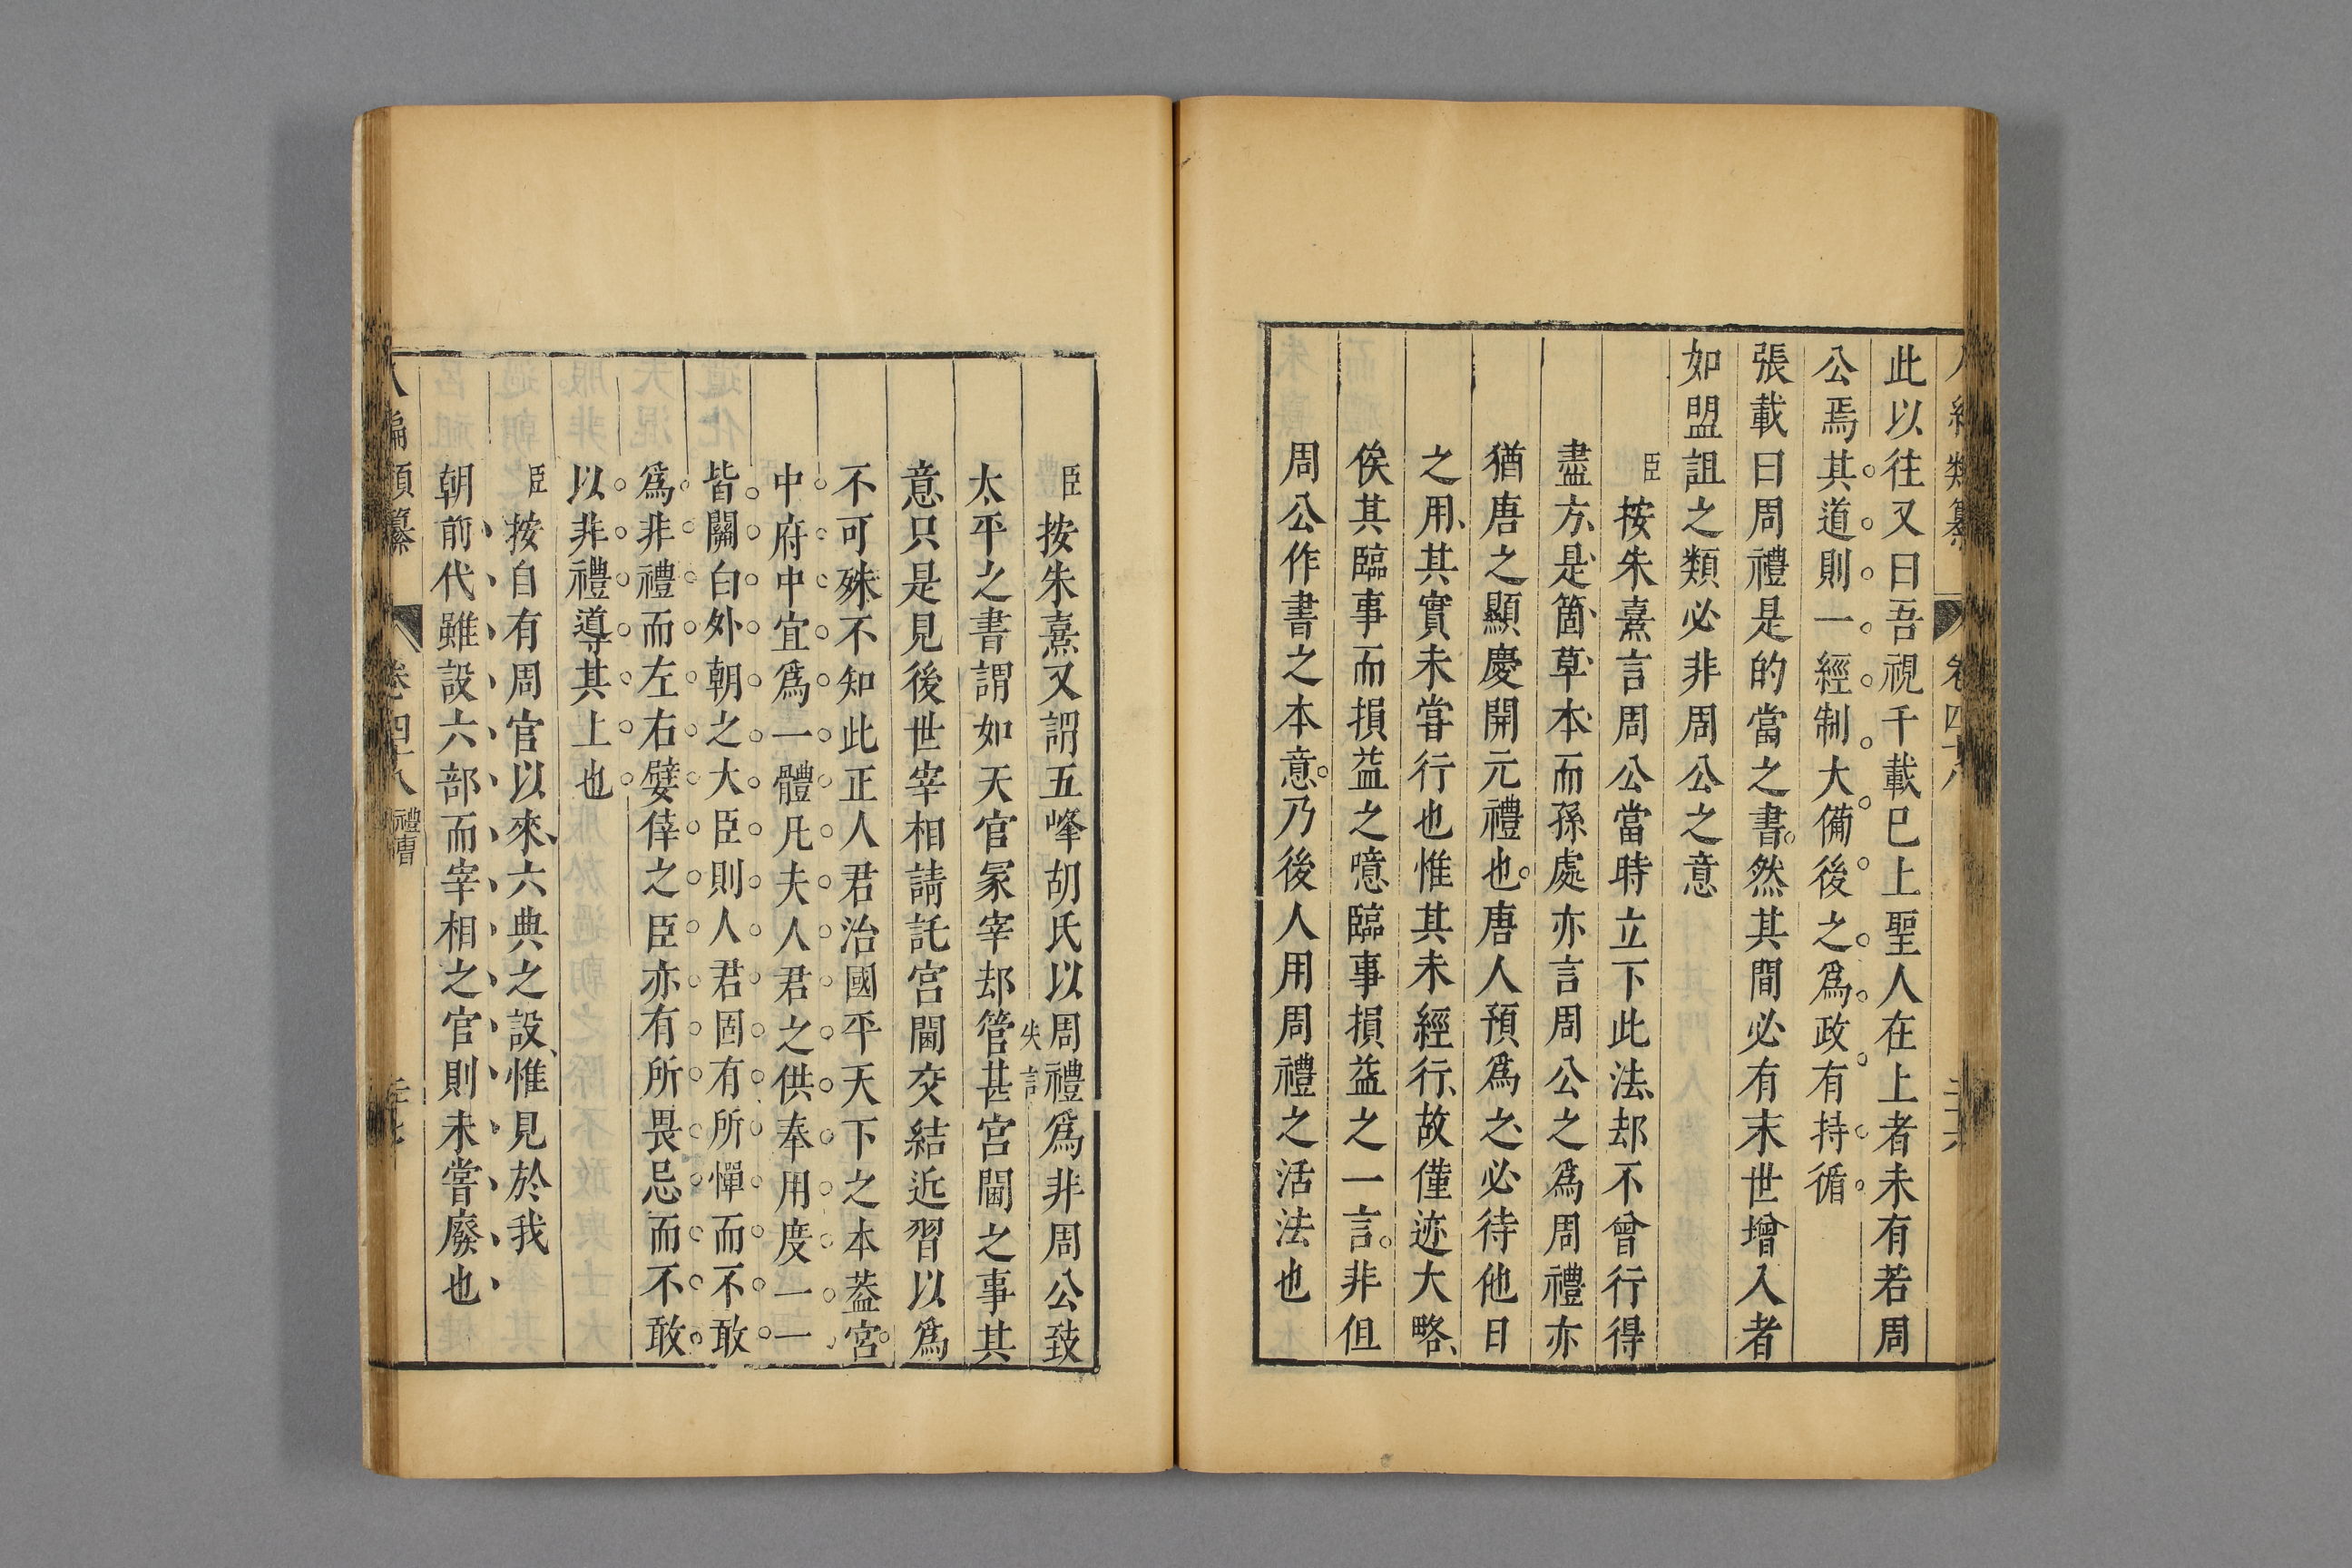 此以往又曰吾視千載已上聖人在上者未有若周
公焉其道則一經制大備後之爲政有持循
張載曰周禮是的當之書然其間必有末世增入者
如盟詛之類必非周公之意
臣按朱熹言周公當時立下此法却不曾行得
盡方是箇草本而孫處亦言周公之爲周禮亦
猶唐之顯慶開元禮也唐人預爲之必待他日
之用其實未甞行也惟其未經行故僅迹大略
俟其臨事而損益之噫臨事損益之一言非但
周公作書之本意乃後人用周禮之活法也
臣按朱熹又謂五峰胡氏以周禮爲非周公致
失言
太平之書謂如天官冢宰却管甚宮闈之事其
意只是見後世宰相請託宮闈交結近習以爲
不可殊不知此正人君治國平天下之本葢宮
中府中宜爲一體凡夫人君之供奉用度一一
皆關白外朝之大臣則人君固有所憚而不敢
爲非禮而左右嬖倖之臣亦有所畏忌而不敢
以非禮導其上也
臣按自有周官以來六典之設惟見於我
朝前代雖設六部而宰相之官則未嘗廢也
八編類纂 卷四十八 禮曹